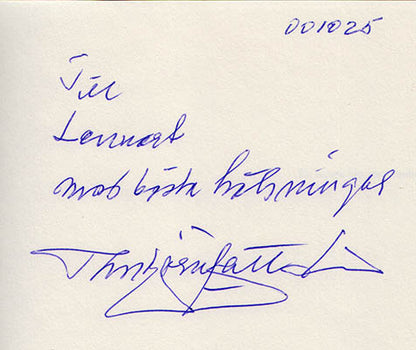 001025
Till
Lennart
med bästa hälsningar
Thorbjörn Fälldin